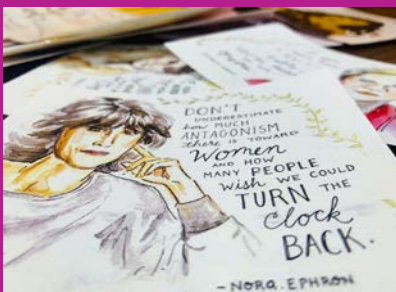 DON'T
UNDERESTIMATE
how MUCH
ANTAGONISM
there IS TOWARD
Women
AND HOW
MANY PEOPLE
wish WE COULD
TURN THE
clock
BACK.
- NORA EPHRON